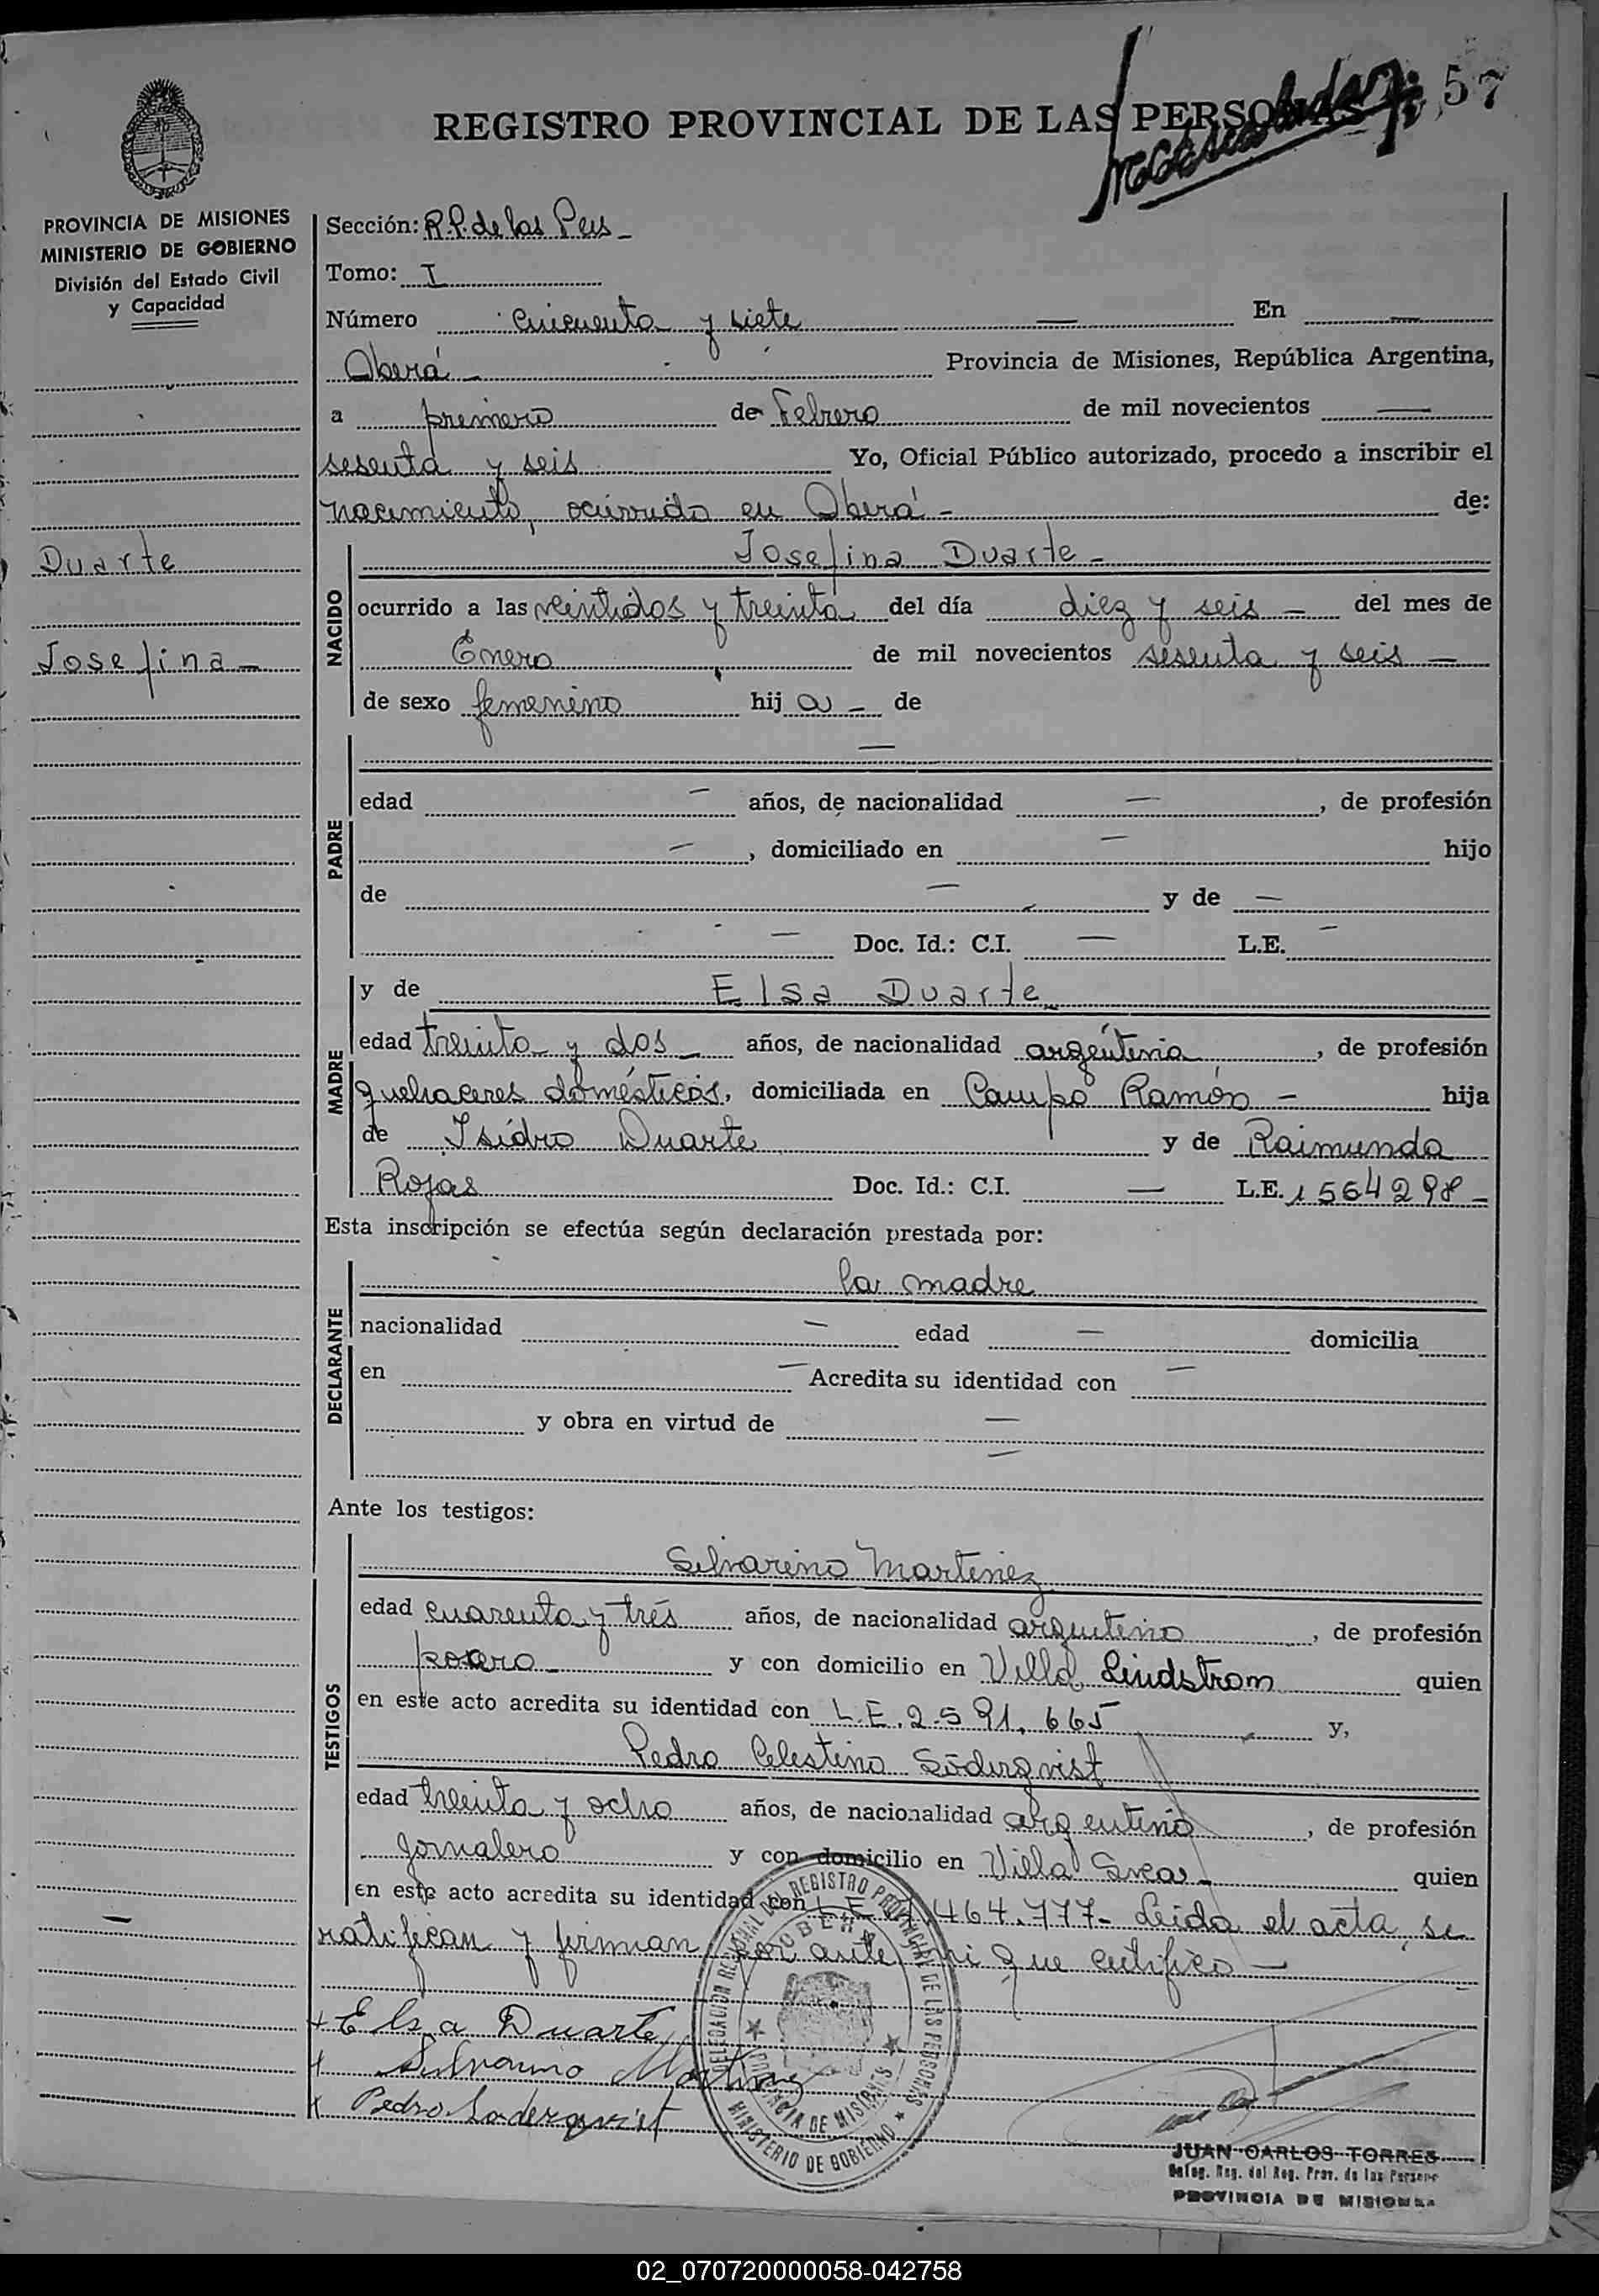 57
REGISTRO PROVINCIAL DE LAS PERSONAS
PROVINCIA DE MISIONES
MINISTERIO DE GOBIERNO
División del Estado Civil
y Capacidad
Duarte
Josefina -
Sección: R.P. de las Pers -
Tomo: I
Número cincuenta y siete — En —
Oberá - Provincia de Misiones, República Argentina,
a primero de Febrero de mil novecientos —
sesenta y seis Yo, Oficial Público autorizado, procedo a inscribir el
nacimiento, ocurrido en Oberá - de:
NACIDO
Josefina Duarte -
ocurrido a las veintidos y treinta del día diez y seis — del mes de
Enero de mil novecientos sesenta y seis —
de sexo femenino hij a - de
PADRE
—
edad — años, de nacionalidad —, de profesión
—, domiciliado en — hijo
de — y de —
— Doc. Id.: C.I. — L.E. —
MADRE
y de Elsa Duarte
edad treinta y dos - años, de nacionalidad argentina, de profesión
quehaceres domésticos, domiciliada en Campo Ramón - hija
de Isidro Duarte y de Raimunda
Rojas Doc. Id.: C.I. — L.E. 1564298 -
Esta inscripción se efectúa según declaración prestada por:
DECLARANTE
la madre
nacionalidad — edad — domicilia
en — Acredita su identidad con —
y obra en virtud de —
—
Ante los testigos:
TESTIGOS
Silvarino Martinez
edad cuarenta y trés años, de nacionalidad argentino, de profesión
y con domicilio en Villa Lindstrom quien
en este acto acredita su identidad con L.E. 2.591.665 y,
Pedro Celestino Söderqvist
edad treinta y ocho años, de nacionalidad argentino, de profesión
jornalero y con domicilio en Villa Svea - quien
en este acto acredita su identidad con L.E. 464.777 - Leída el acta, se
ratifican y firman por ante mi que certifico —
+ Elsa Duarte
+ Silvarino Martinez
x Pedro Soderqvist
DELEGACION REGIONAL DEL REGISTRO PROVINCIAL DE LAS PERSONAS
MINISTERIO DE GOBIERNO
PROVINCIA DE MISIONES
JUAN CARLOS TORRES
Deleg. Reg. del Reg. Prov. de las Person
PROVINCIA DE MISIONES
02_070720000058-042758